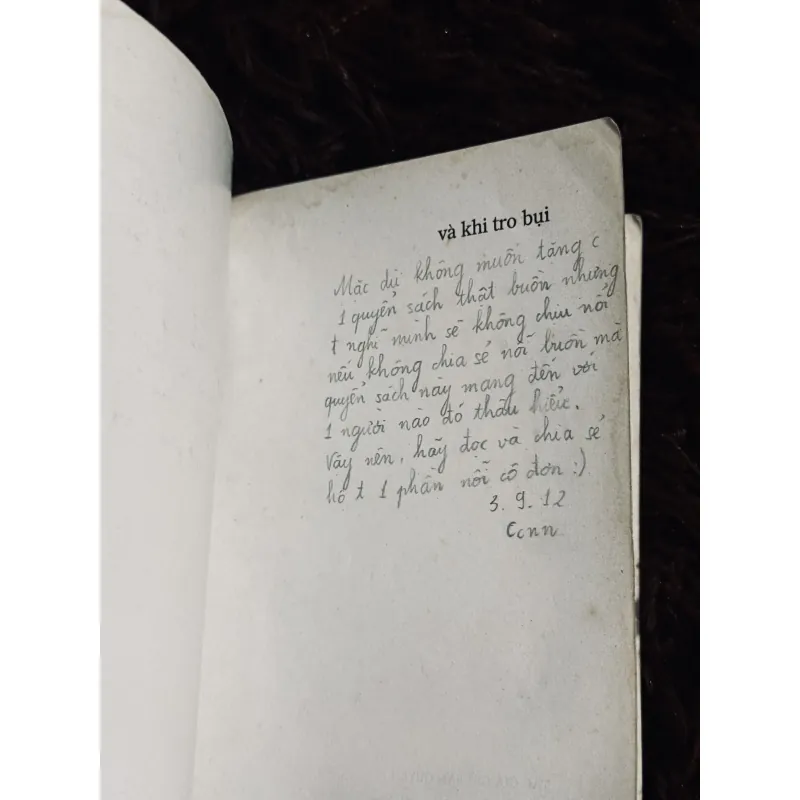 và khi tro bụi
Mặc dù không muốn tặng c
1 quyển sách thật buồn nhưng
t nghĩ mình sẽ không chịu nổi
nếu không chia sẻ nỗi buồn mà
quyển sách này mang đến với
1 người nào đó thấu hiểu.
Vậy nên, hãy đọc và chia sẻ
hộ t 1 phần nỗi cô đơn :)
3.9.12